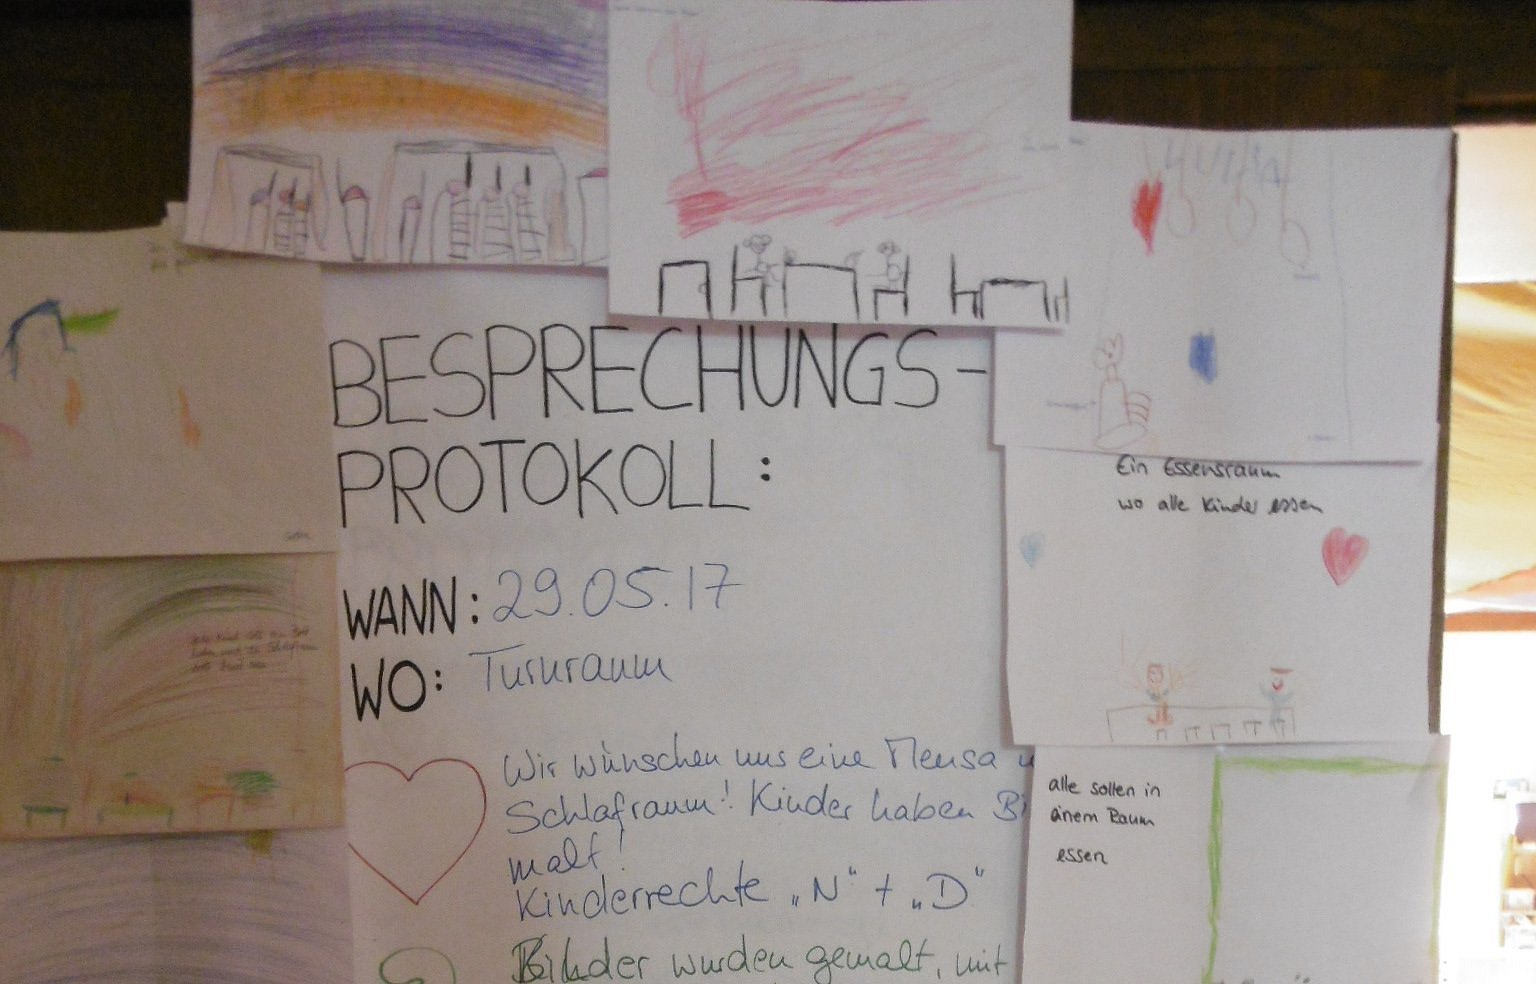 BESPRECHUNGS-
PROTOKOLL:
WANN: 29.05.17
WO: Turnraum
Wir wünschen uns eine Mensa u
Schlafraum! Kinder haben Bi
malt!
Kinderrechte „N“ + „D“
Bilder wurden gemalt, mit
Ein Essensraum
wo alle Kinder essen
alle sollen in
einem Raum
essen